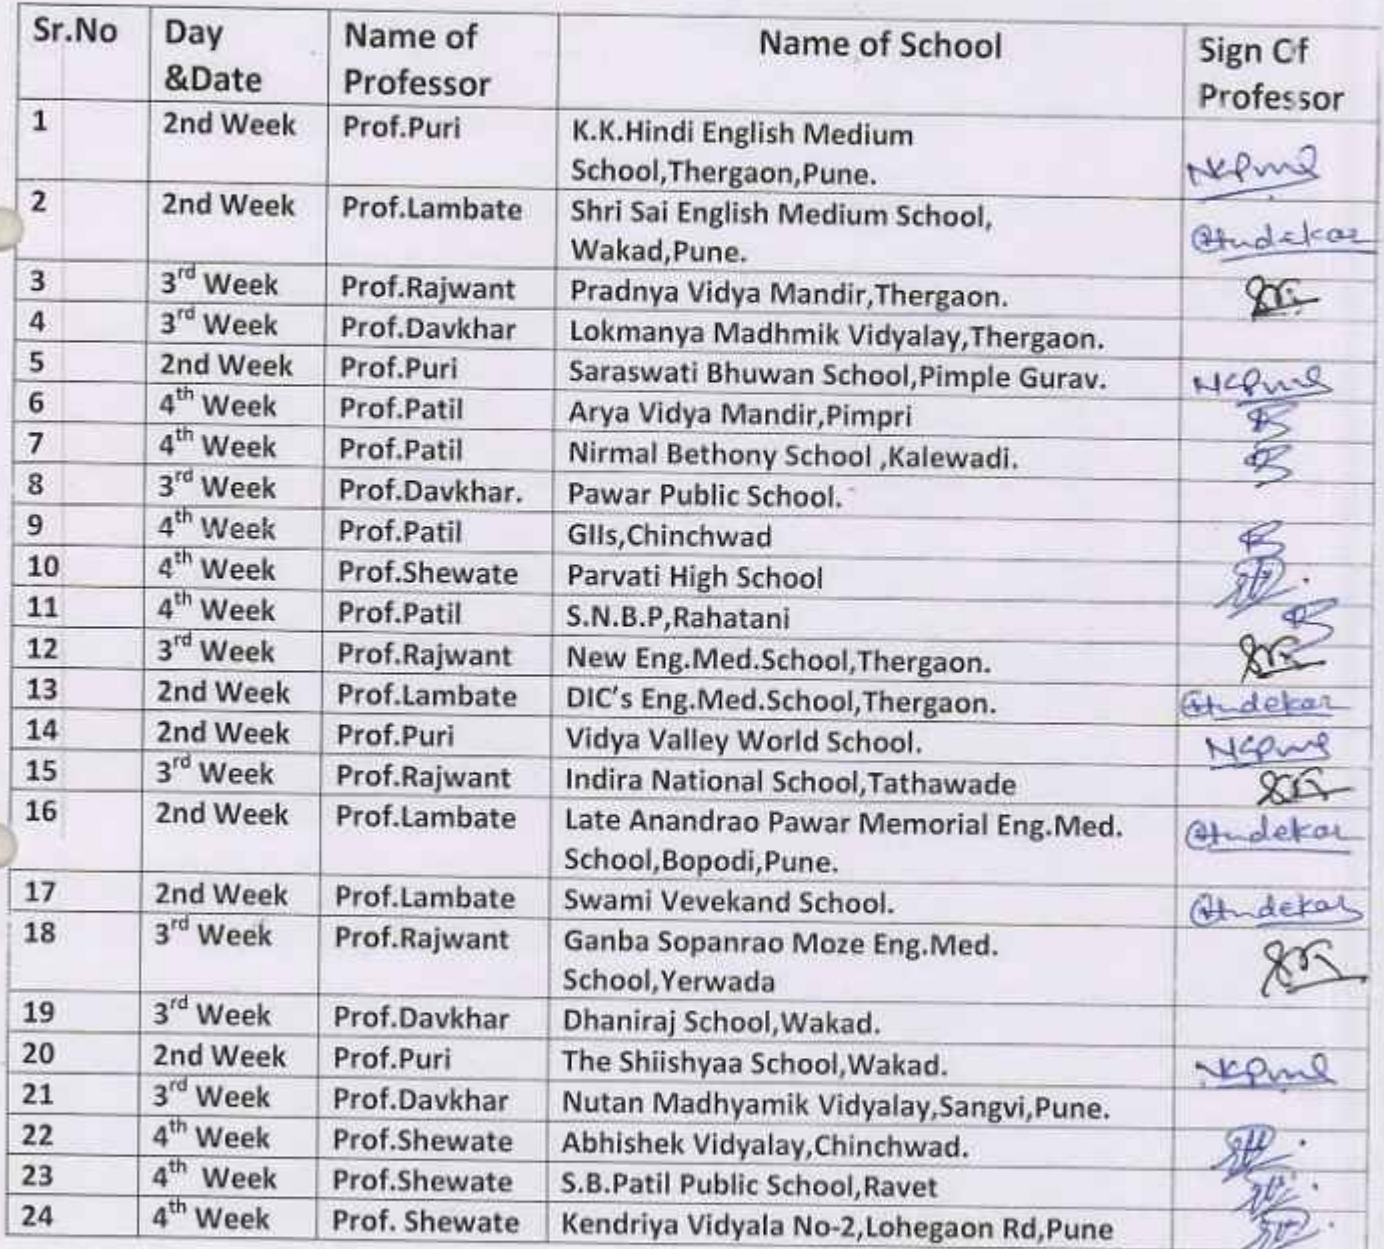 Sr.No Day &Date Name of Professor Name of School Sign Of Professor
1 2nd Week Prof.Puri K.K.Hindi English Medium
School,Thergaon,Pune. NKPuri
2 2nd Week Prof.Lambate Shri Sai English Medium School,
Wakad,Pune.
3 3rd Week Prof.Rajwant Pradnya Vidya Mandir,Thergaon.
4 3rd Week Prof.Davkhar Lokmanya Madhmik Vidyalay,Thergaon.
5 2nd Week Prof.Puri Saraswati Bhuwan School,Pimple Gurav. NKPuri
6 4th Week Prof.Patil Arya Vidya Mandir,Pimpri
7 4th Week Prof.Patil Nirmal Bethony School ,Kalewadi.
8 3rd Week Prof.Davkhar. Pawar Public School.
9 4th Week Prof.Patil GIIs,Chinchwad
10 4th Week Prof.Shewate Parvati High School
11 4th Week Prof.Patil S.N.B.P,Rahatani
12 3rd Week Prof.Rajwant New Eng.Med.School,Thergaon.
13 2nd Week Prof.Lambate DIC's Eng.Med.School,Thergaon.
14 2nd Week Prof.Puri Vidya Valley World School. NKPuri
15 3rd Week Prof.Rajwant Indira National School,Tathawade
16 2nd Week Prof.Lambate Late Anandrao Pawar Memorial Eng.Med.
School,Bopodi,Pune.
17 2nd Week Prof.Lambate Swami Vevekand School.
18 3rd Week Prof.Rajwant Ganba Sopanrao Moze Eng.Med.
School,Yerwada
19 3rd Week Prof.Davkhar Dhaniraj School,Wakad.
20 2nd Week Prof.Puri The Shiishyaa School,Wakad. NKPuri
21 3rd Week Prof.Davkhar Nutan Madhyamik Vidyalay,Sangvi,Pune.
22 4th Week Prof.Shewate Abhishek Vidyalay,Chinchwad.
23 4th Week Prof.Shewate S.B.Patil Public School,Ravet
24 4th Week Prof. Shewate Kendriya Vidyala No-2,Lohegaon Rd,Pune